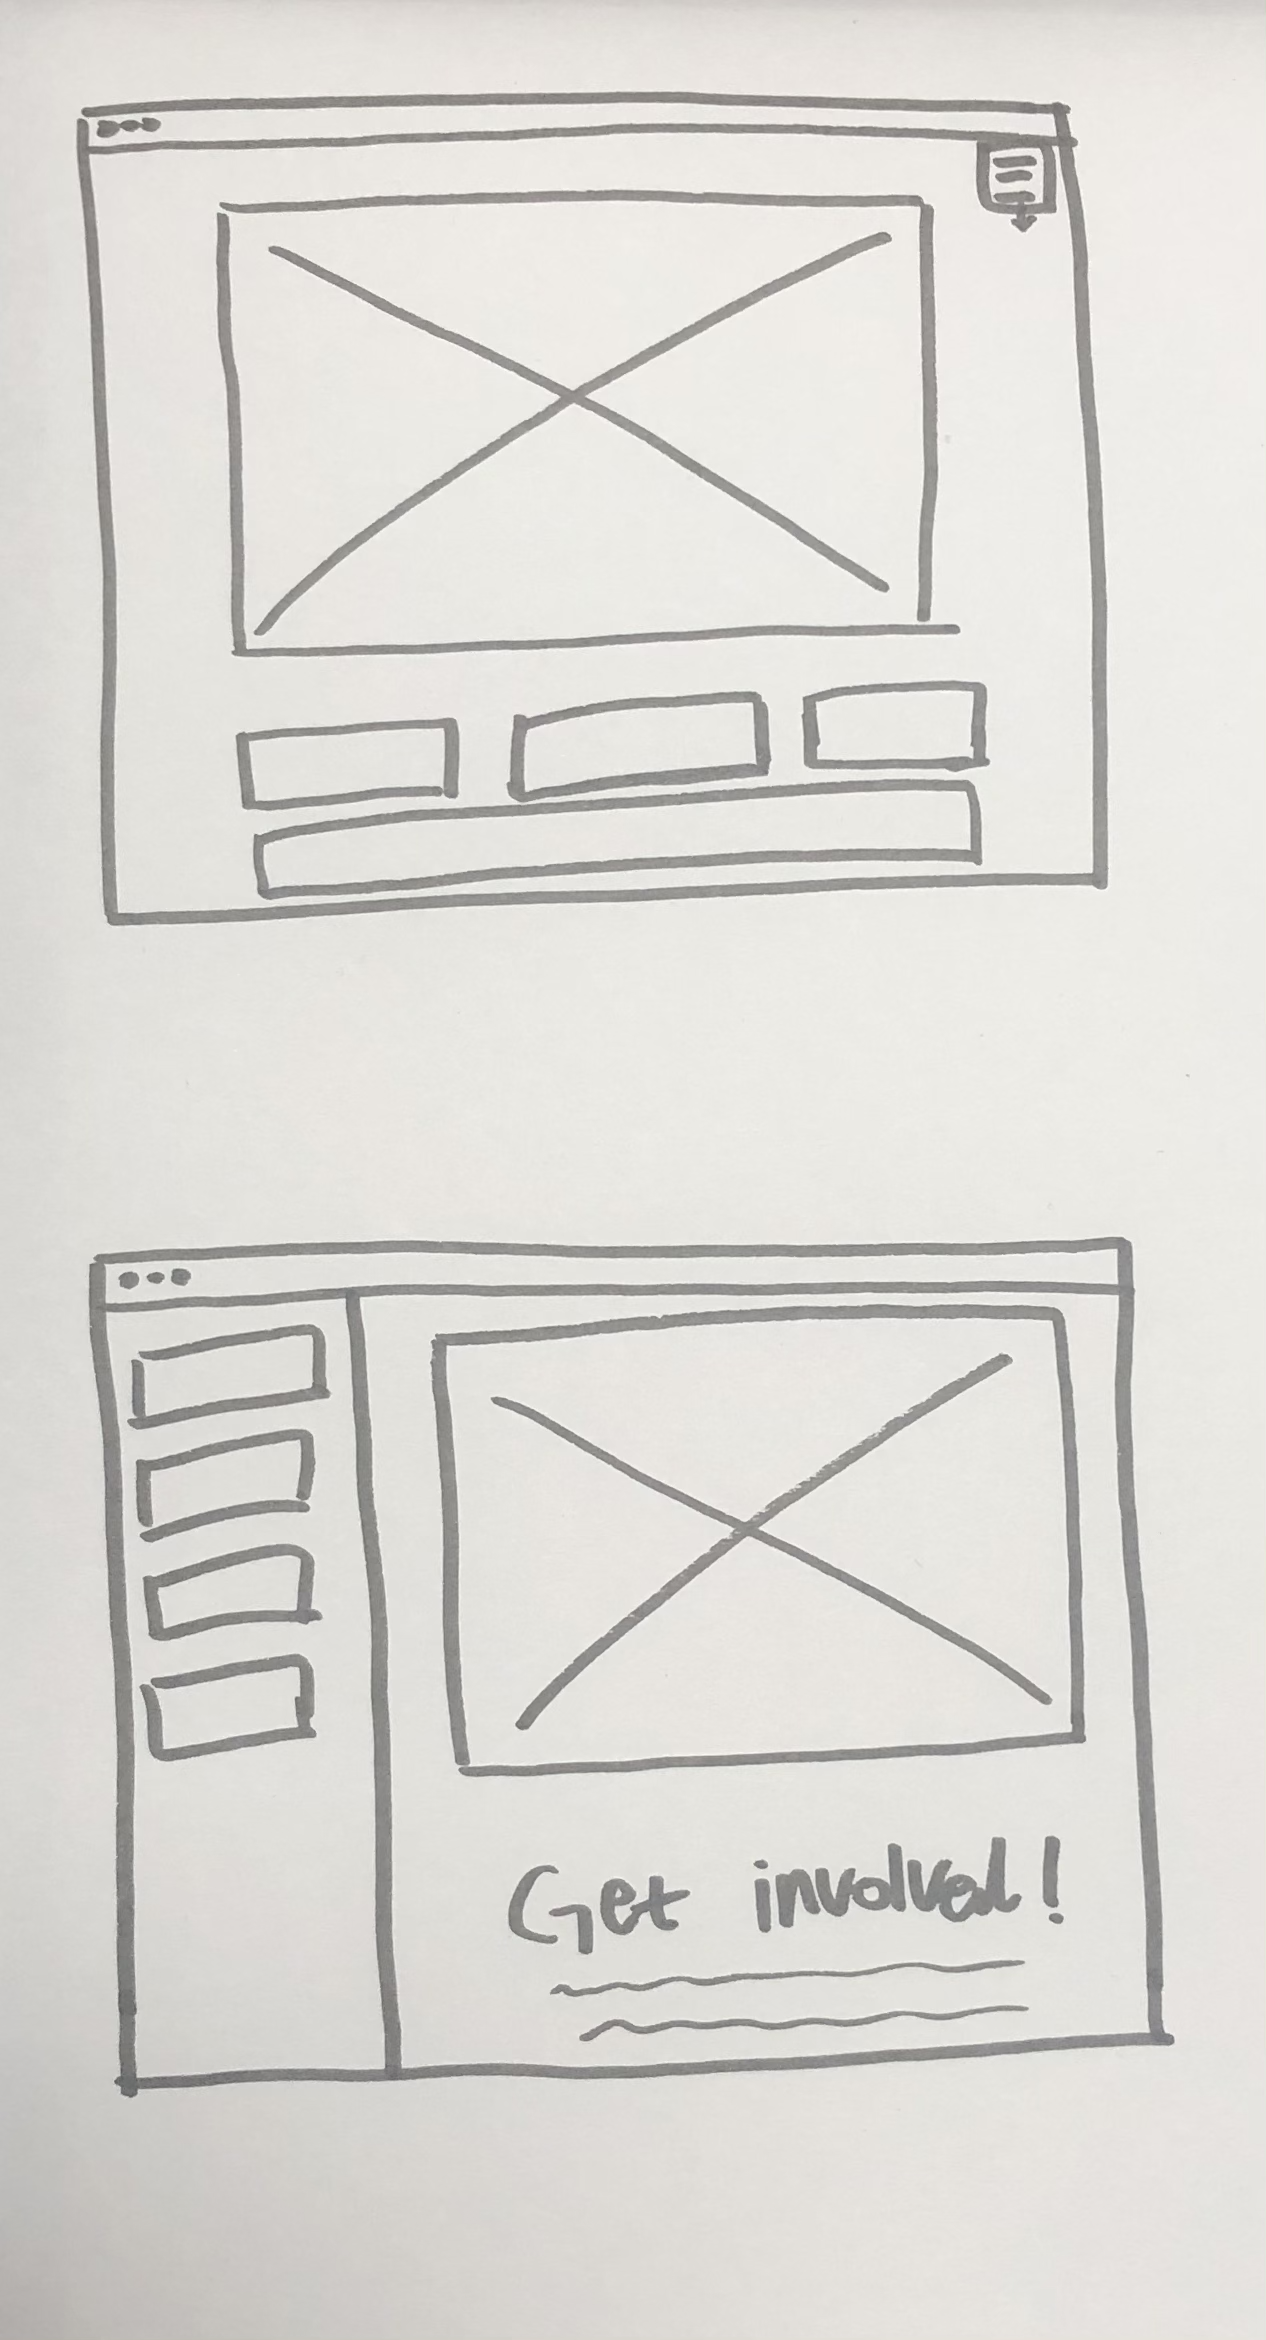 Get involved!